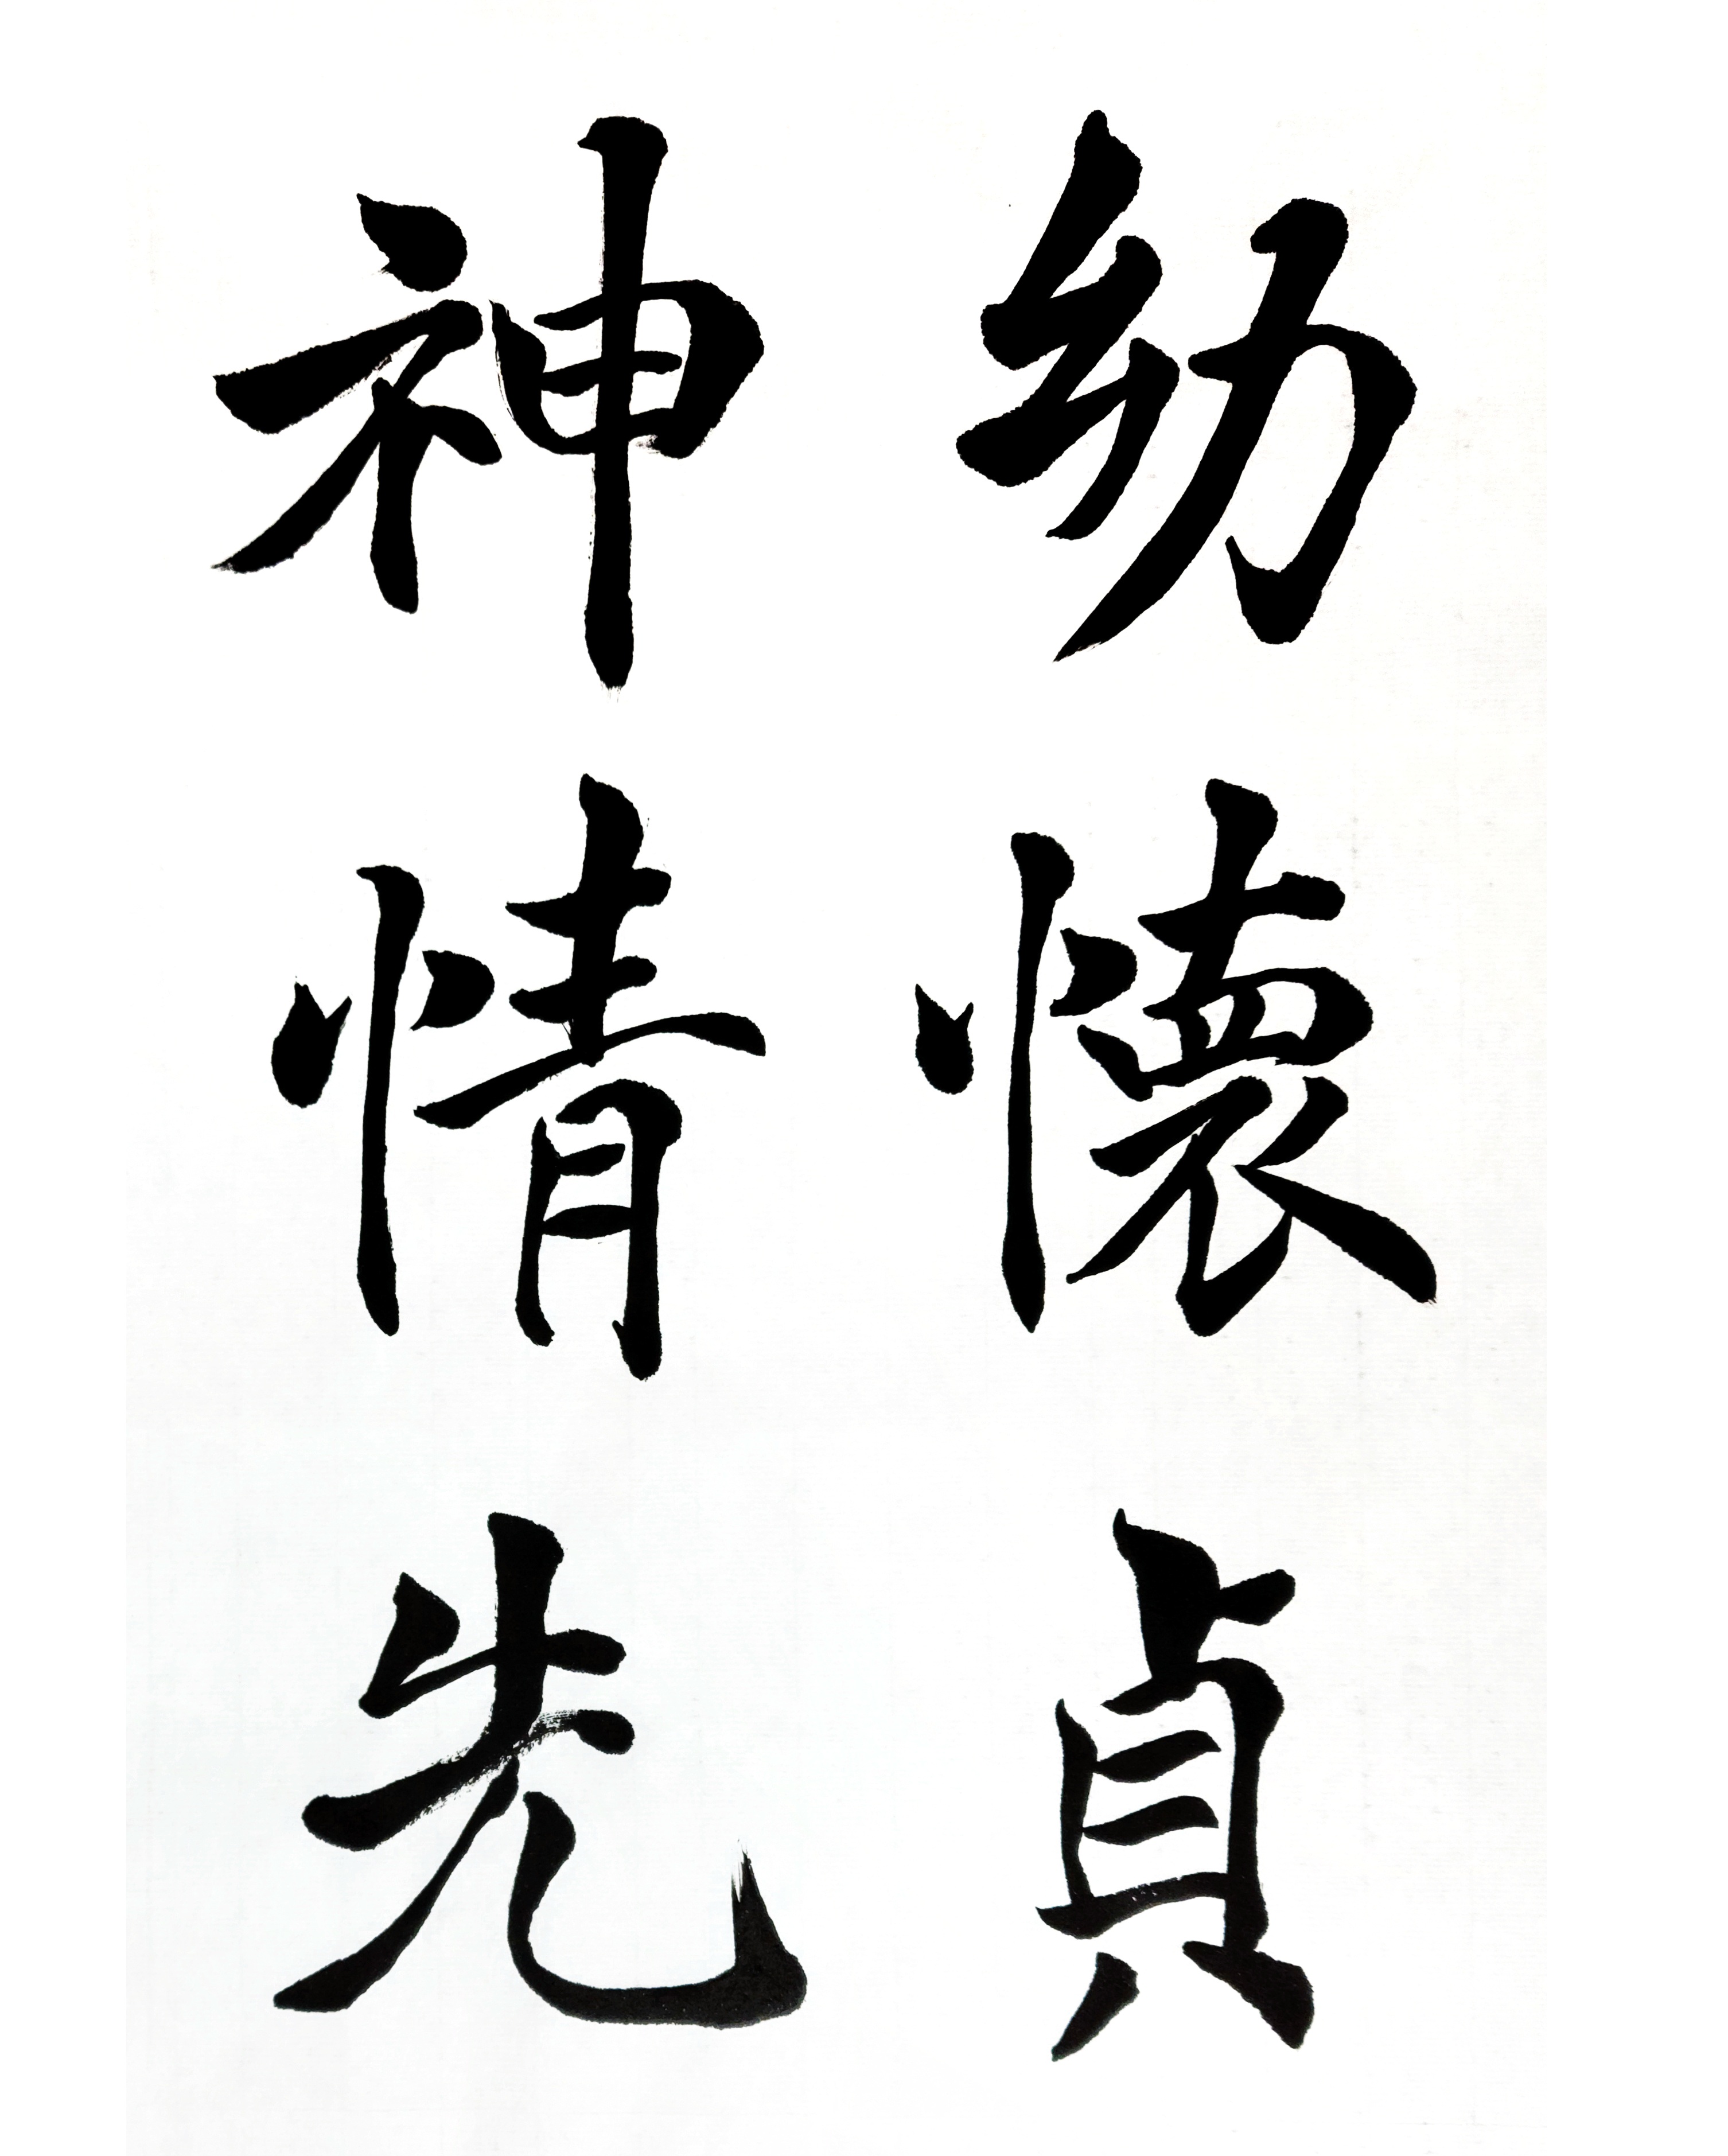 幼懷貞
神情先